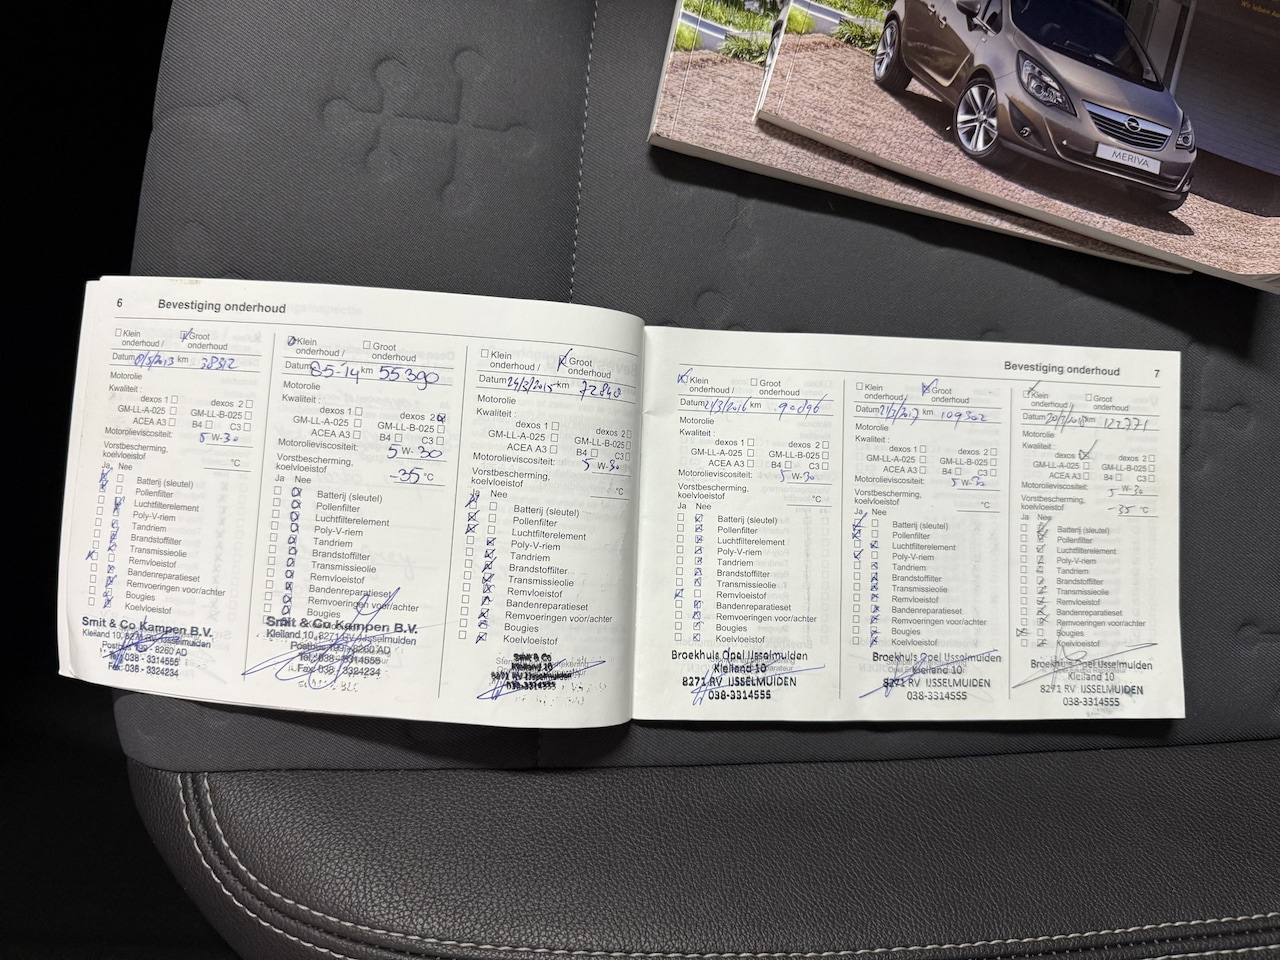 MERIVA
6 Bevestiging onderhoud
Klein onderhoud / Groot onderhoud
Datum 8/5/2013 km 38312
Motorolie
Kwaliteit :
dexos 1 dexos 2
GM-LL-A-025 GM-LL-B-025
ACEA A3 B4 C3
Motorolieviscositeit: 5 W-30
Vorstbescherming, koelvloeistof °C
Ja Nee
Batterij (sleutel)
Pollenfilter
Luchtfilterelement
Poly-V-riem
Tandriem
Brandstoffilter
Transmissieolie
Remvloeistof
Bandenreparatieset
Remvoeringen voor/achter
Bougies
Koelvloeistof
Smit & Co Kampen B.V.
Kleiland 10, 8271 RV IJsselmuiden
Postbus 169, 8260 AD
Tel. 038 - 3314555
Fax 038 - 3324234
Klein onderhoud / Groot onderhoud
Datum 05-14 km 55390
Motorolie
Kwaliteit :
dexos 1 dexos 2
GM-LL-A-025 GM-LL-B-025
ACEA A3 B4 C3
Motorolieviscositeit: 5 W-30
Vorstbescherming, koelvloeistof -35 °C
Ja Nee
Batterij (sleutel)
Pollenfilter
Luchtfilterelement
Poly-V-riem
Tandriem
Brandstoffilter
Transmissieolie
Remvloeistof
Bandenreparatieset
Remvoeringen voor/achter
Bougies
Smit & Co Kampen B.V.
Kleiland 10, 8271 RV IJsselmuiden
Postbus 169, 8260 AD
Tel. 038 - 3314555
Fax 038 - 3324234
Klein onderhoud / Groot onderhoud
Datum 24/3/2015 km 72848
Motorolie
Kwaliteit :
dexos 1 dexos 2
GM-LL-A-025 GM-LL-B-025
ACEA A3 B4 C3
Motorolieviscositeit: 5 W-30
Vorstbescherming, koelvloeistof °C
Ja Nee
Batterij (sleutel)
Pollenfilter
Luchtfilterelement
Poly-V-riem
Tandriem
Brandstoffilter
Transmissieolie
Remvloeistof
Bandenreparatieset
Remvoeringen voor/achter
Bougies
Koelvloeistof
Smit & Co
Kleiland 10
8271 RV IJsselmuiden
038-3314555
Bevestiging onderhoud 7
Klein onderhoud / Groot onderhoud
Datum 2/3/2016 km 90896
Motorolie
Kwaliteit :
dexos 1 dexos 2
GM-LL-A-025 GM-LL-B-025
ACEA A3 B4 C3
Motorolieviscositeit: 5 W-30
Vorstbescherming, koelvloeistof °C
Ja Nee
Batterij (sleutel)
Pollenfilter
Luchtfilterelement
Poly-V-riem
Tandriem
Brandstoffilter
Transmissieolie
Remvloeistof
Bandenreparatieset
Remvoeringen voor/achter
Bougies
Koelvloeistof
Broekhuis Opel IJsselmuiden
Kleiland 10
8271 RV IJSSELMUIDEN
038-3314555
Klein onderhoud / Groot onderhoud
Datum 21/3/2017 km 109302
Motorolie
Kwaliteit :
dexos 1 dexos 2
GM-LL-A-025 GM-LL-B-025
ACEA A3 B4 C3
Motorolieviscositeit: 5 W-30
Vorstbescherming, koelvloeistof °C
Ja Nee
Batterij (sleutel)
Pollenfilter
Luchtfilterelement
Poly-V-riem
Tandriem
Brandstoffilter
Transmissieolie
Remvloeistof
Bandenreparatieset
Remvoeringen voor/achter
Bougies
Koelvloeistof
Broekhuis Opel IJsselmuiden
Kleiland 10
8271 RV IJSSELMUIDEN
038-3314555
Klein onderhoud / Groot onderhoud
Datum km 122771
Motorolie
Kwaliteit :
dexos 1 dexos 2
GM-LL-A-025 GM-LL-B-025
ACEA A3 B4 C3
Motorolieviscositeit: 5 W-30
Vorstbescherming, koelvloeistof -35 °C
Ja Nee
Batterij (sleutel)
Pollenfilter
Luchtfilterelement
Poly-V-riem
Tandriem
Brandstoffilter
Transmissieolie
Remvloeistof
Bandenreparatieset
Remvoeringen voor/achter
Bougies
Koelvloeistof
Broekhuis Opel IJsselmuiden
Kleiland 10
8271 RV IJSSELMUIDEN
038-3314555